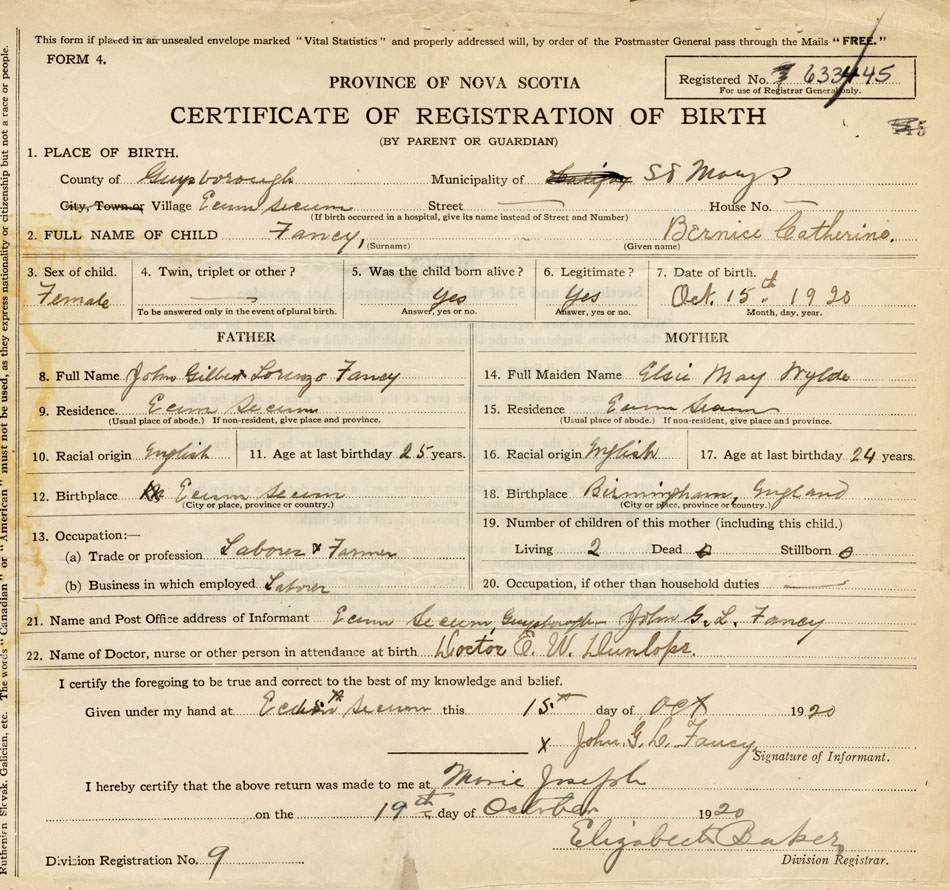 This form if placed in an unsealed envelope marked "Vital Statistics" and properly addressed will, by order of the Postmaster General pass through the Mails "FREE."
FORM 4.
Registered No. 633445
For use of Registrar General only.
PROVINCE OF NOVA SCOTIA
CERTIFICATE OF REGISTRATION OF BIRTH
(BY PARENT OR GUARDIAN)
1. PLACE OF BIRTH.
County of Guysborough Municipality of Halifax St Marys
City, Town or Village Ecum Secum Street — House No. —
(If birth occurred in a hospital, give its name instead of Street and Number)
2. FULL NAME OF CHILD Fancy, Bernice Catherine.
(Surname) (Given name)
3. Sex of child. 4. Twin, triplet or other? 5. Was the child born alive? 6. Legitimate? 7. Date of birth.
Female — Yes Yes Oct. 15th 1920
To be answered only in the event of plural birth. Answer, yes or no. Answer, yes or no. Month, day, year.
FATHER MOTHER
8. Full Name John Gilbert Lorenzo Fancy 14. Full Maiden Name Elsie May Wylde
9. Residence. Ecum Secum 15. Residence Ecum Secum
(Usual place of abode.) If non-resident, give place and province. (Usual place of abode.) If non-resident, give place and province.
10. Racial origin English 11. Age at last birthday 25 years. 16. Racial origin English 17. Age at last birthday 24 years.
12. Birthplace Ecum Secum 18. Birthplace Birmingham, England
(City or place, province or country.) (City or place, province or country.)
13. Occupation:— 19. Number of children of this mother (including this child.)
(a) Trade or profession Laborer & Farmer Living 2 Dead 0 Stillborn 0
(b) Business in which employed Laborer 20. Occupation, if other than household duties —
21. Name and Post Office address of Informant Ecum Secum, Guysborough John G. L. Fancy
22. Name of Doctor, nurse or other person in attendance at birth Doctor E. W. Dunlop.
I certify the foregoing to be true and correct to the best of my knowledge and belief.
Given under my hand at Ecum Secum this 15th day of Oct 1920
x John G. L. Fancy
Signature of Informant.
I hereby certify that the above return was made to me at Marie Joseph
on the 19th day of October 1920
Elizabeth Baker
Division Registration No. 9 Division Registrar.
Ruthenian Slovak, Galician, etc. The words "Canadian" or "American" must not be used, as they express nationality or citizenship but not a race or people.